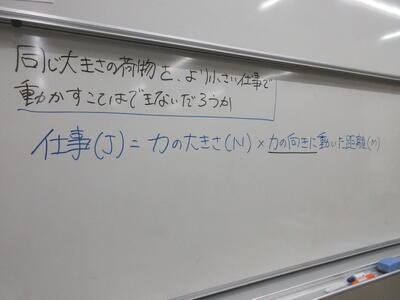 同じ大きさの荷物を、より小さい仕事で
動かすことはできないだろうか
仕事(J)=力の大きさ(N)×力の向きに動いた距離(m)